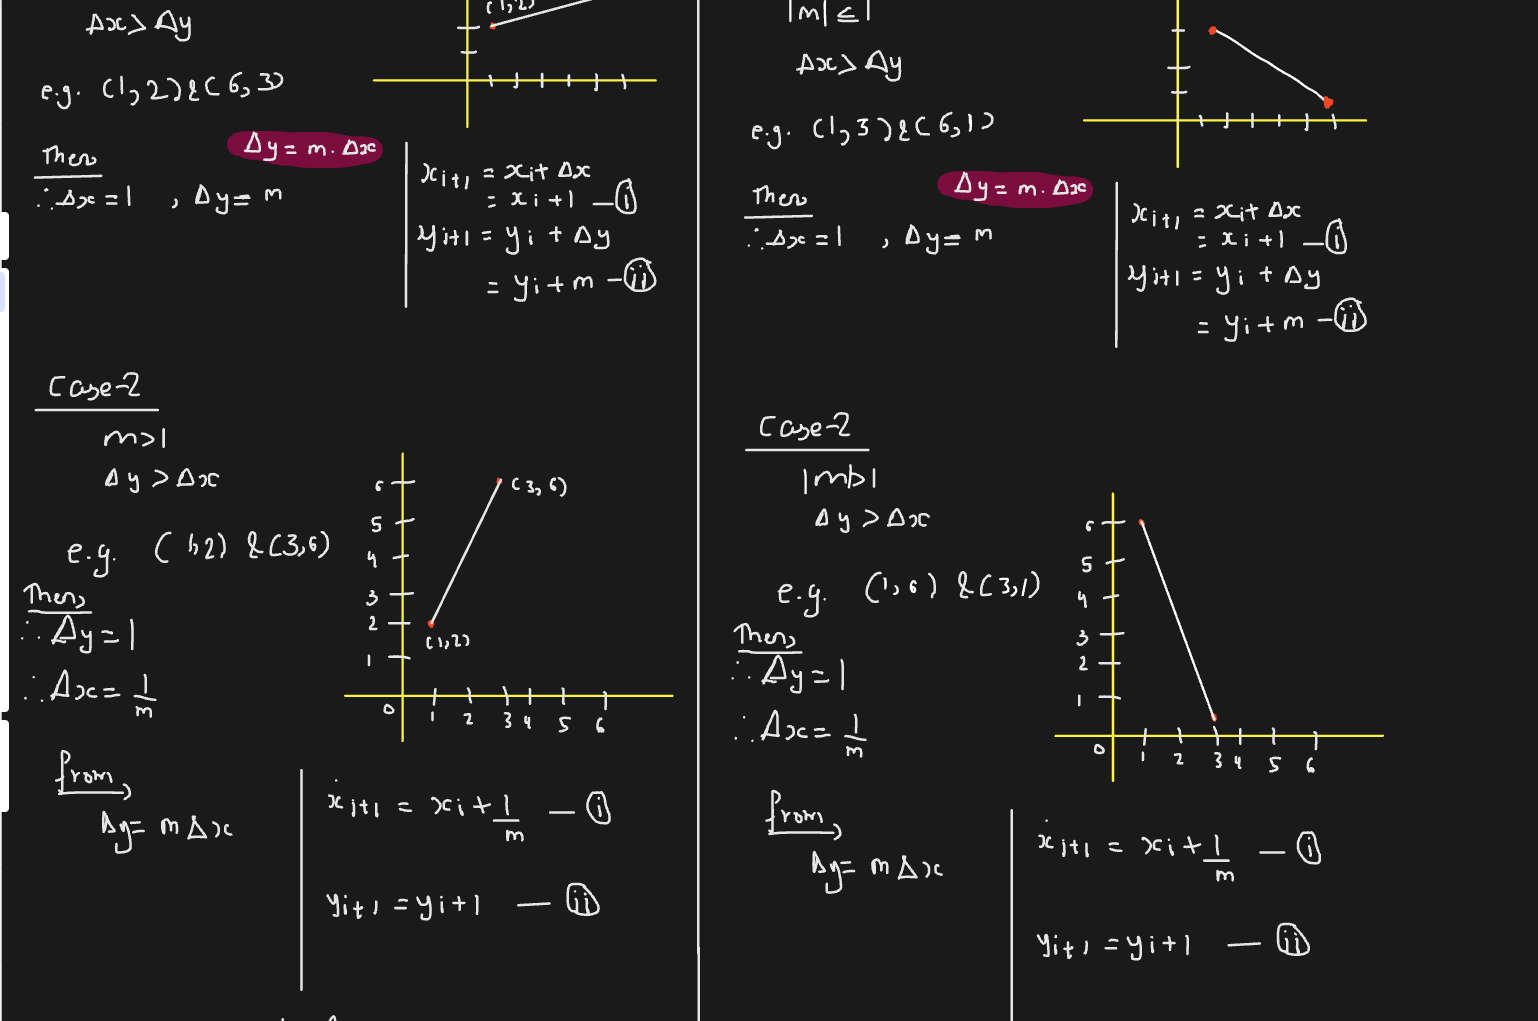 Δx > Δy
e.g. (1,2) & (6,3)
(1,2)
Then
Δy = m. Δx
∴ Δx = 1 , Δy = m
xi+1 = xi + Δx
= xi + 1 — (i)
yi+1 = yi + Δy
= yi + m — (ii)
Case-2
m>1
Δy > Δx
e.g. (1,2) & (3,6)
Then,
∴ Δy = 1
∴ Δx = 1/m
6 (3,6)
5
4
3
2
(1,2)
1
0 1 2 3 4 5 6
from
Δy = m Δx
xi+1 = xi + 1/m — (i)
yi+1 = yi + 1 — (ii)
|m| ≤ 1
Δx > Δy
e.g. (1,3) & (6,1)
Then
Δy = m. Δx
∴ Δx = 1 , Δy = m
xi+1 = xi + Δx
= xi + 1 — (i)
yi+1 = yi + Δy
= yi + m — (ii)
Case-2
|m|>1
Δy > Δx
e.g. (1,6) & (3,1)
Then,
∴ Δy = 1
∴ Δx = 1/m
6
5
4
3
2
1
0 1 2 3 4 5 6
from
Δy = m Δx
xi+1 = xi + 1/m — (i)
yi+1 = yi + 1 — (ii)